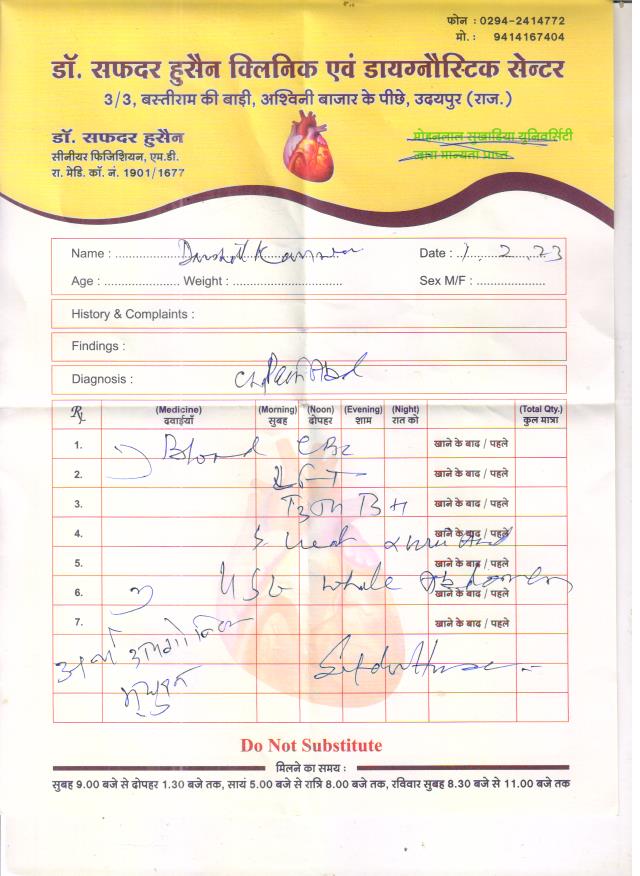 फोन : 0294-2414772
मो. : 9414167404
डॉ. सफदर हुसैन क्लिनिक एवं डायग्नौस्टिक सेन्टर
3/3, बस्तीराम की बाड़ी, अश्विनी बाजार के पीछे, उदयपुर (राज.)
डॉ. सफदर हुसैन
सीनीयर फिजिशियन, एम.डी.
रा. मेडि. कॉ. नं. 1901/1677
मोहनलाल सुखाडिया यूनिवर्सिटी
द्वारा मान्यता प्राप्त
Name : Date : 1.2.23
Age : Weight : Sex M/F :
History & Complaints :
Findings :
Diagnosis :
Rx (Medicine) (Morning) (Noon) (Evening) (Night) (Total Qty.)
दवाईयाँ सुबह दोपहर शाम रात को कुल मात्रा
1. Blood CBC खाने के बाद / पहले
2. खाने के बाद / पहले
3. खाने के बाद / पहले
4. खाने के बाद / पहले
5. खाने के बाद / पहले
6. USG whole Abdomen खाने के बाद / पहले
7. खाने के बाद / पहले
Do Not Substitute
मिलने का समय :
सुबह 9.00 बजे से दोपहर 1.30 बजे तक, सायं 5.00 बजे से रात्रि 8.00 बजे तक, रविवार सुबह 8.30 बजे से 11.00 बजे तक